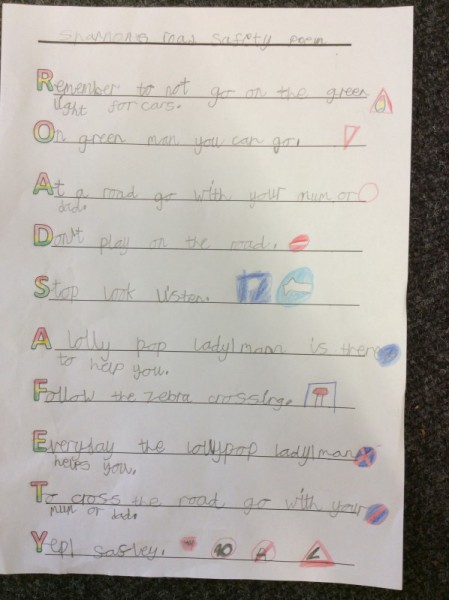 Shannons road safety poem
Remember to not go on the green
light for cars.
On green man you can go.
At a road go with your mum or
dad.
Don't play on the road.
Stop look listen.
A lolly pop lady/mann is there
to help you.
Follow the zebra crossing.
Everyday the lollypop lady/man
helps you.
To cross the road go with your
mum or dad.
Yep! safley.